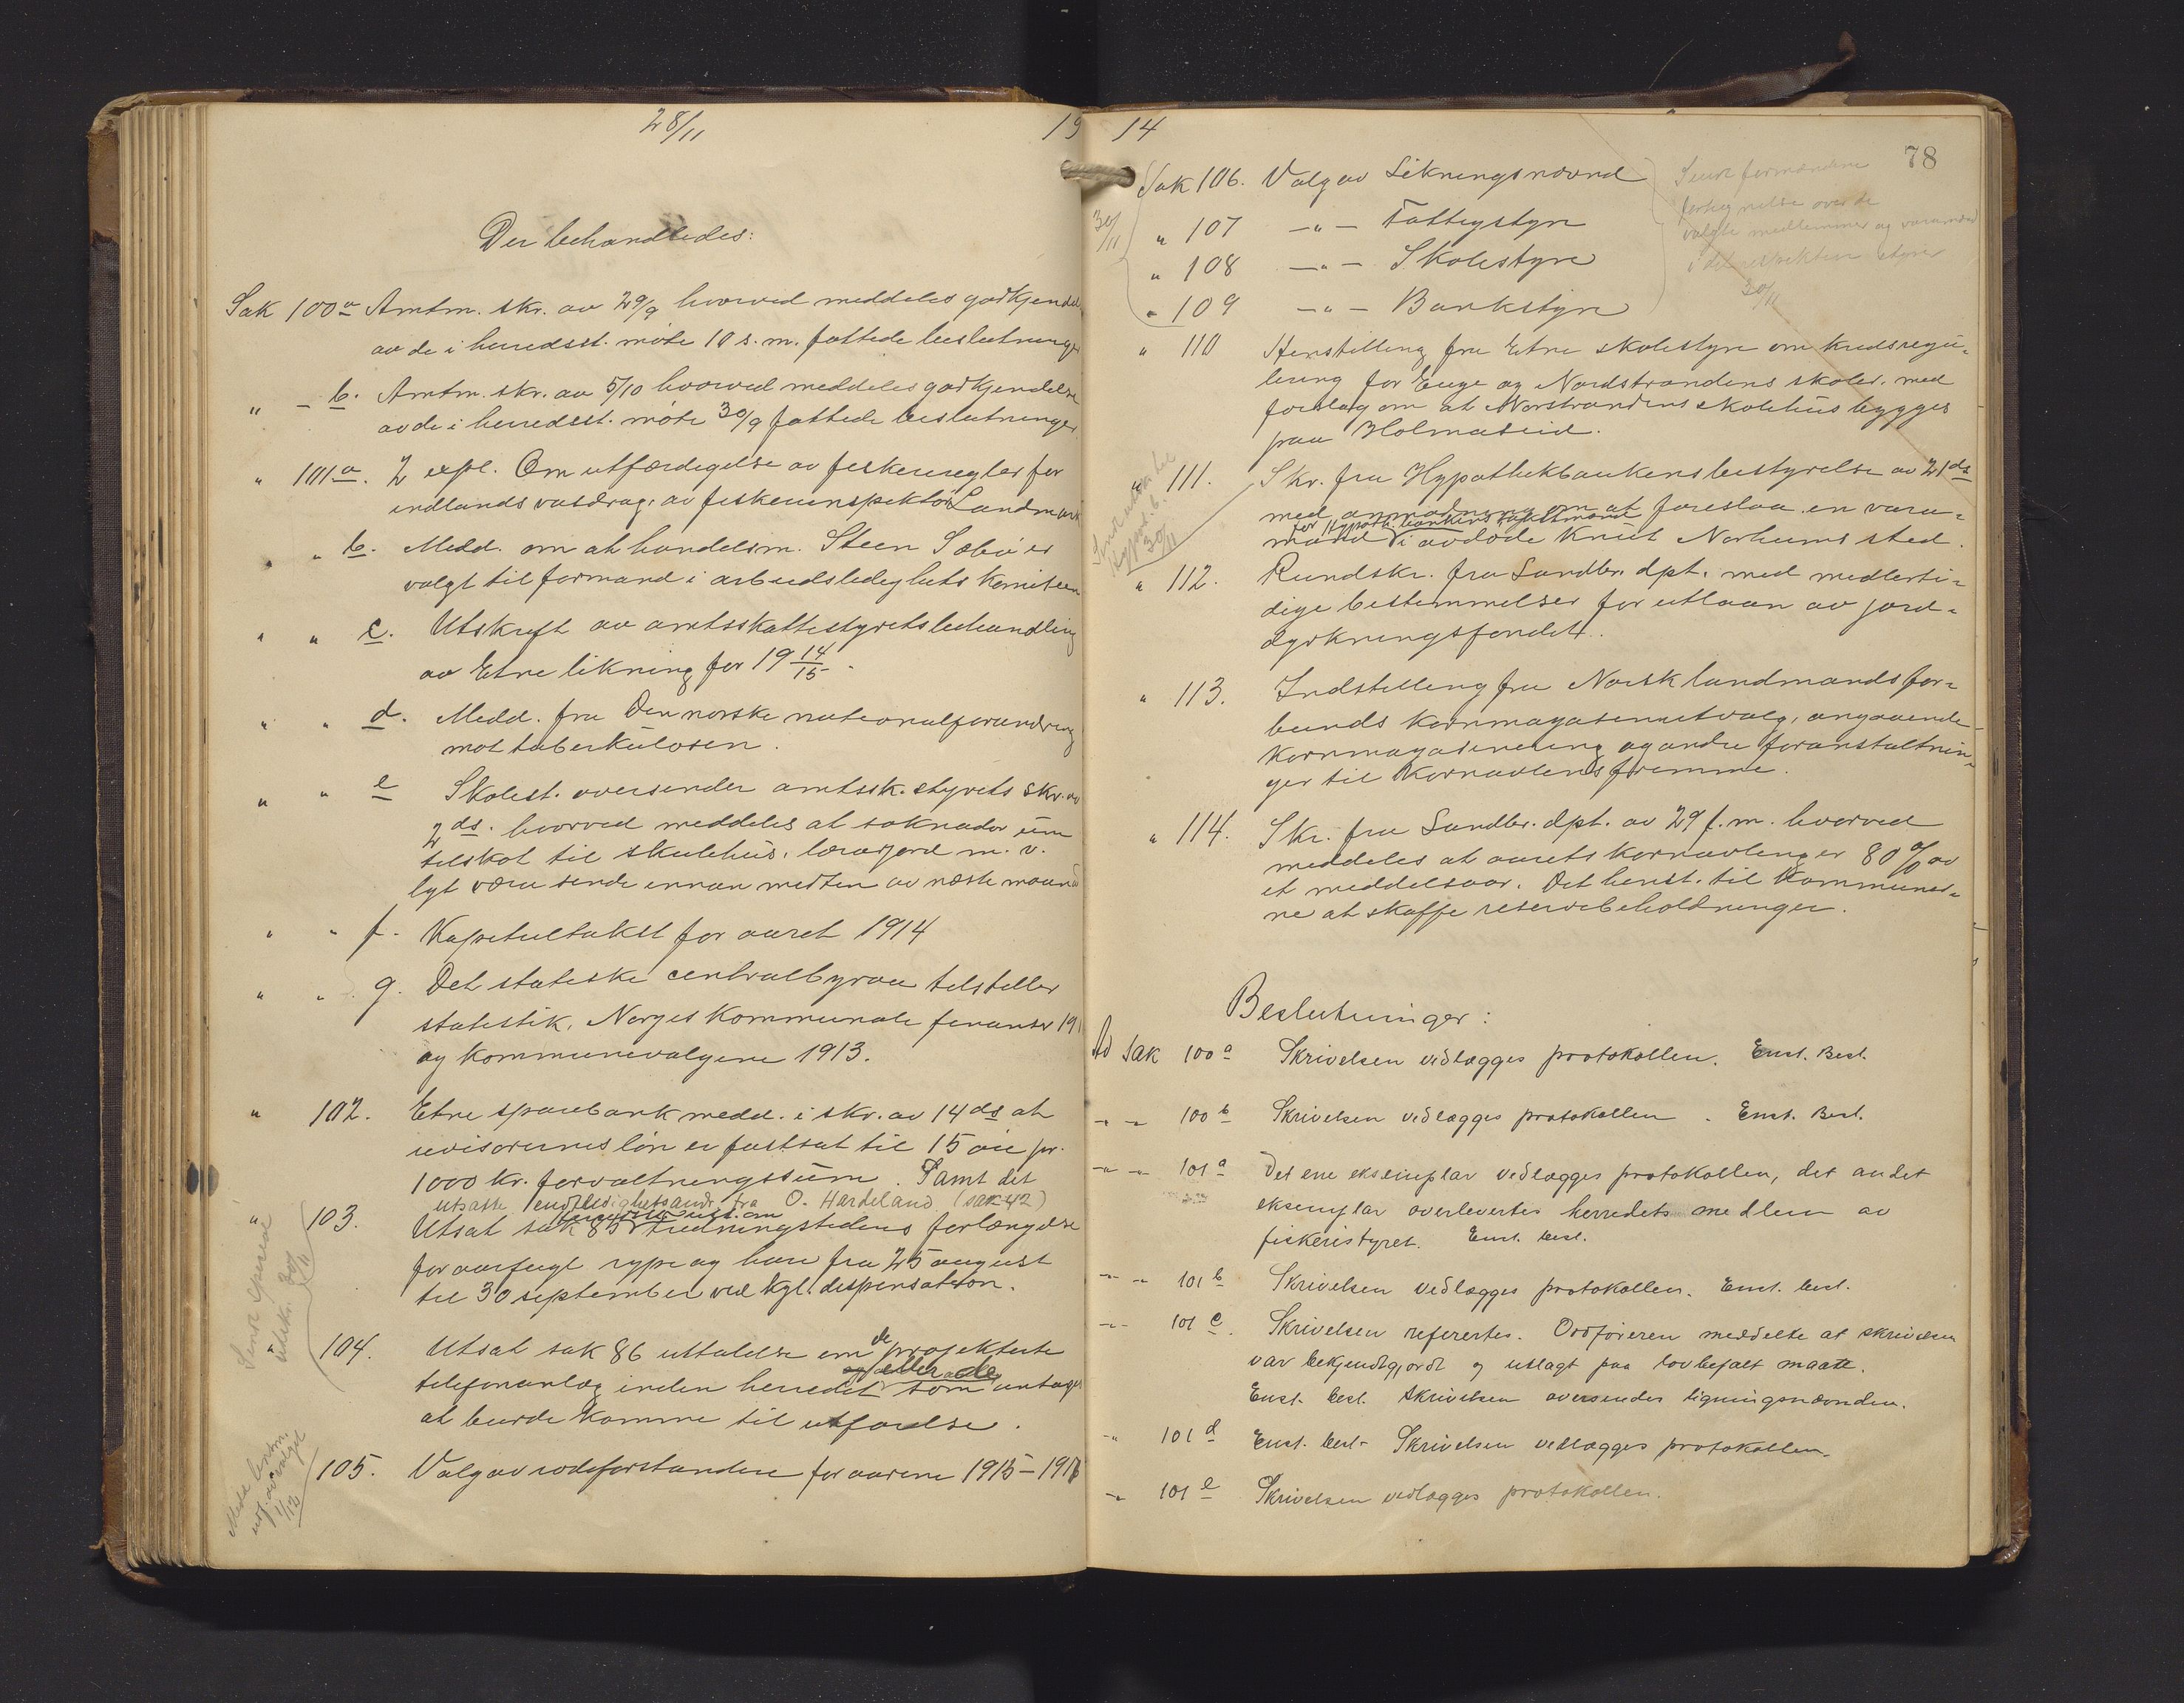 28/11 19
Der behandledes:
Sak 100a Amtm. skr. av 29/9 hvorved meddeles godkjendelse
av de i herredsst. møte 10 s. m. fattede beslutninger
" - b. Amtm. skr. av 5/10 hvorved meddeles godkjendelse
av de i herredsst. møte 30/9 fattede beslutninger.
" 101a. 2 expl. Om utfærdigelse av fiskeriregler for
indlands vasdrag, av fiskeriinspektør Landmark
" " b. Medd. om at handelsm. Steen Sæbø er
valgt til formand i arbeidsledighets komiteen
" " c. Utskrift av amtsskattestyrets behandling
av Etne likning for 19 14/15.
" " d. Medd. fra Den norske nationalforening
mot tuberkulosen.
" " e Skolest. oversender amtssk.styrets skr. av
2 ds. hvorved meddeles at søknader um
tilskot til skulehus, lærarjord m. v.
lyt væra sende innan midten av næste maaned
" " f. Kapiteltakst for aaret 1914
" " g. Det statiske centralbyraa tilstiller
statistik, Norges kommunale finanser 191
og kommunevalgene 1913.
" 102. Etne sparebank medd. i skr. av 14 ds at
revisorernes løn er fastsat til 15 øre pr.
1000 kr. forvaltningssum. Samt det
utsatte lendsledighetsandr. fra O. Hardeland (sak 42)
" 103. Utsat sak 85 fredningstidens forlængelse
for aarfugl rype og hare fra 25 august
til 30 september ved kgl. dispensation.
Send specialutskr. 30/11
" 104. Utsat sak 86 uttalelse om de projekterte
og/eller de
telefonanlæg inden herredet som antages
at burde komme til utførelse.
105. Valg av rodeforstandere for aarene 1915-1916
1/12
14
78
Sak 106. Valg av Likningsnævnd
30/11
" 107 -"- Fattigstyre
" 108 -"- Skolestyre
" 109 -"- Bankstyre
Send formændene
fortegnelse over de
valgte medlemmer og varamænd
i det respektive styrer
30/11
" 110 Henstilling fra Etne skolestyre om kredsregu-
lering for Enge og Nordstrandens skoler, med
forslag om at Norstrandens skolehus bygges
paa Holmaseid.
" 111. Skr. fra Hypothekbankens bestyrelse av 21 ds
med anmodning om at foreslaa en vara-
for Hypoth. bankens takstmænd
mand i avdøde Knut Norheims sted.
30/11
" 112. Rundskr. fra Landbr. dpt. med midlerti-
dige bestemmelser for utlaan av jord-
dyrkningsfondet.
" 113. Indstilling fra Norsk landmandsfor-
bunds kornmagasinutvalg, angaaende
kornmagasinering og andre foranstaltnin-
ger til kornavlens fremme.
" 114. Skr. fra Landbr. dpt. av 29 f. m. hvorved
meddeles at aarets kornavling er 80% av
et middelsaar. Det henst. til kommuner-
ne at skaffe reservebeholdninger.
Beslutninger:
Ad sak 100a Skrivelsen vedlægges protokollen. Enst. Besl.
-"- 100b Skrivelsen vedlægges protokollen. Enst. Besl.
-"- 101a Det ene eksemplar vedlægges protokollen, det andet
eksemplar overlevertes herredets medlem av
fiskeristyret. Enst. besl.
-"- 101b Skrivelsen vedlægges protokollen. Enst. besl.
-"- 101c. Skrivelsen referertes. Ordføreren meddelte at skrivelsen
var bekjendtgjordt og utlagt paa lovbefalt maate.
Enst. besl. Skrivelsen oversendes ligningsnævnden.
-"- 101d Enst. besl. Skrivelsen vedlægges protokollen.
-"- 101e Skrivelsen vedlægges protokollen.